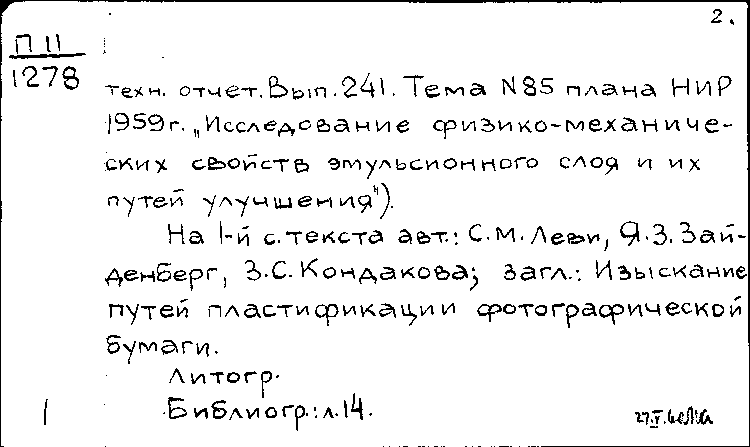 2.
П 11
1278
техн. отчет. Вып. 241. Тема N85 плана НИР
1959г. „Исследование физико-механиче-
ских свойств эмульсионного слоя и их
путей улучшения").
На 1-й с. текста авт.: С.М. Леви, Я.З. Зай-
денберг, З.С. Кондакова; загл.: Изыскание
путей пластификации фотографической
бумаги.
Литогр.
1 Библиогр.: л. 14.